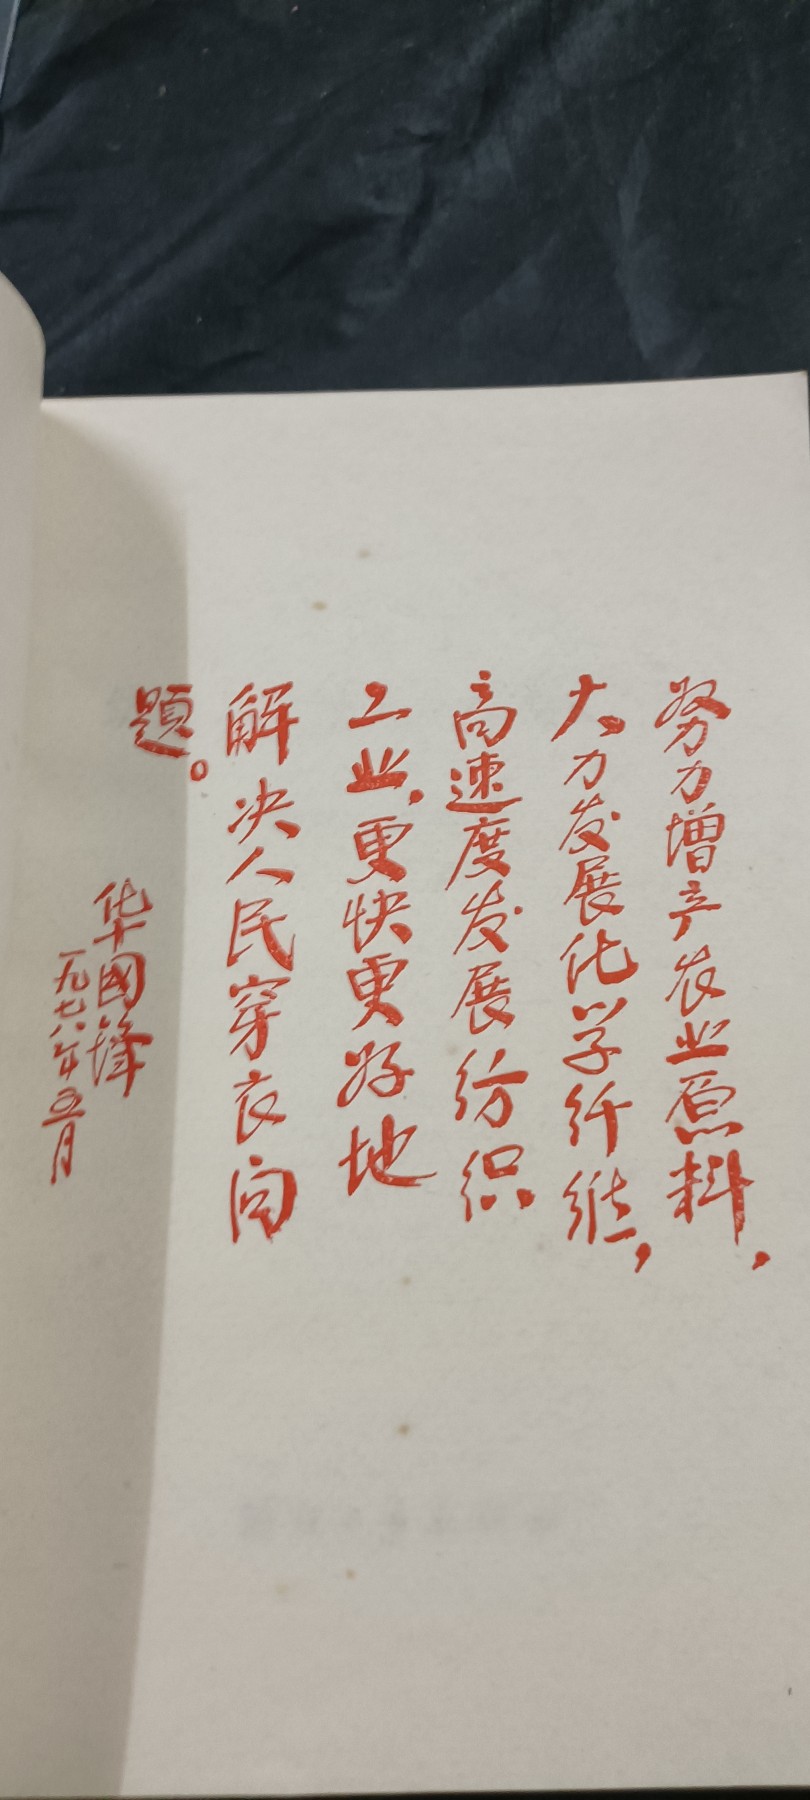 努力增产农业原料，
大力发展化学纤维，
高速度发展纺织
工业，更快更好地
解决人民穿衣问
题。
华國锋
一九七八年五月